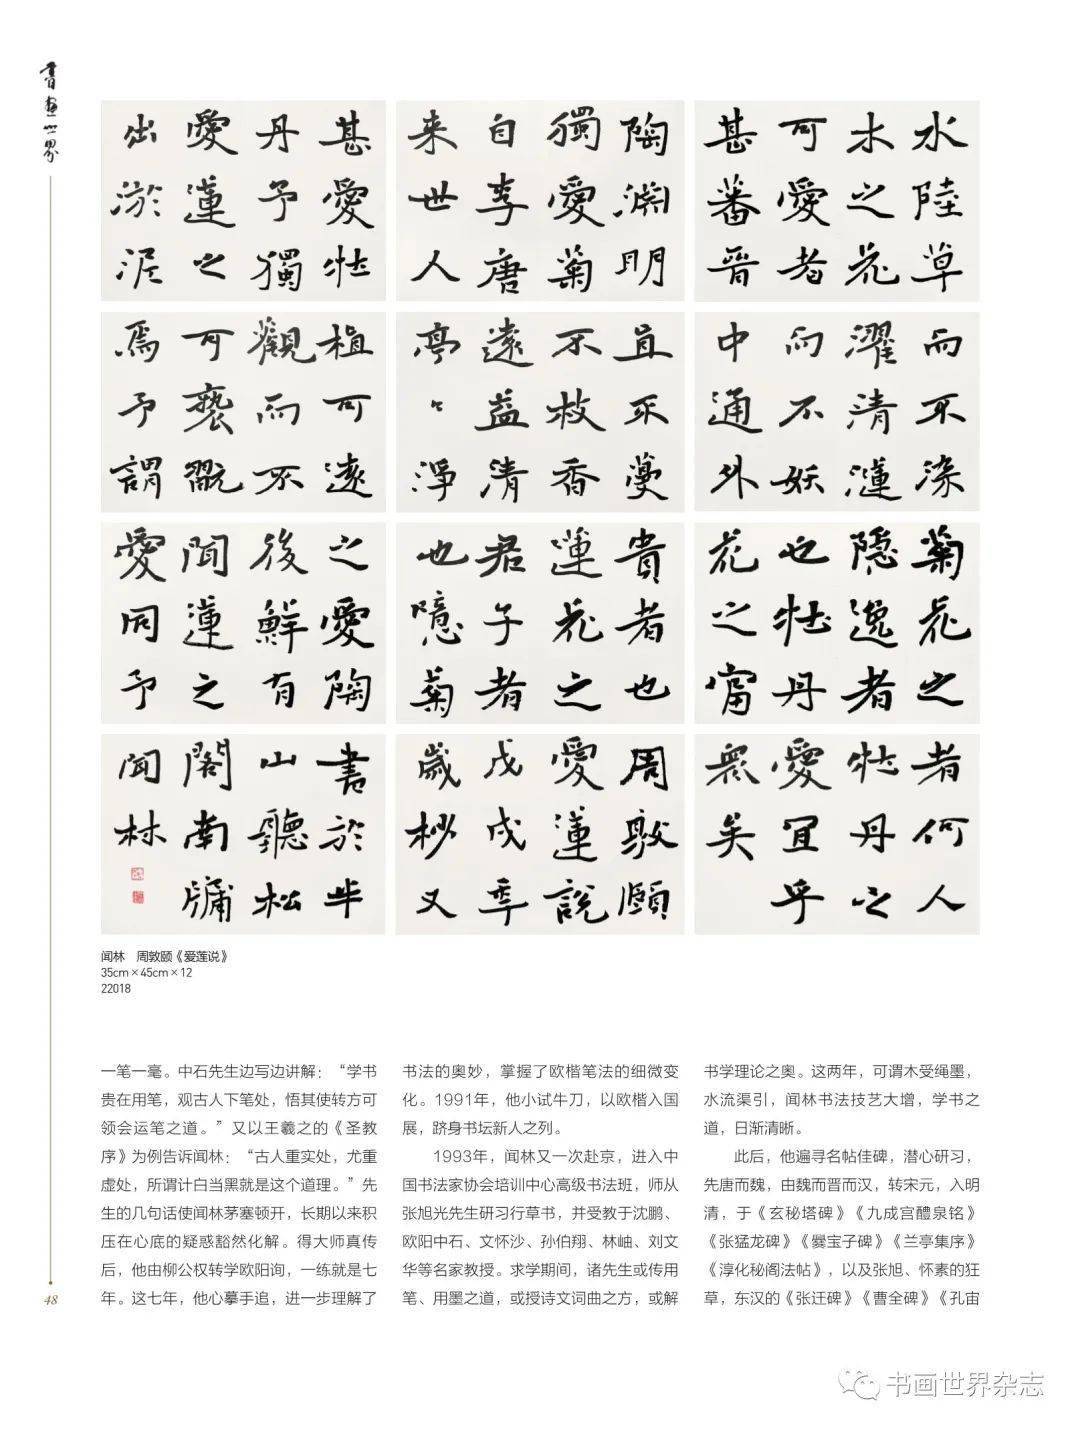 书画世界
水陸草
木之花
可愛者
甚蕃晉
陶渊明
獨愛菊
自李唐
来世人
甚愛牡
丹予獨
愛蓮之
出淤泥
而不染
濯清漣
而不妖
中通外
直不蔓
不枝香
遠益清
亭々淨
植可遠
觀而不
可褻翫
焉予謂
菊花之
隱逸者
也牡丹
花之富
貴者也
蓮花之
君子者
也噫菊
之愛陶
後鮮有
聞蓮之
愛同予
者何人
牡丹之
愛宜乎
衆矣
周敦頤
愛蓮説
戊戌年
歲杪又
書於半
山聽松
閣南牖
聞林
闻林 周敦颐《爱莲说》
35cm×45cm×12
22018
一笔一毫。中石先生边写边讲解：“学书
贵在用笔，观古人下笔处，悟其使转方可
领会运笔之道。”又以王羲之的《圣教
序》为例告诉闻林：“古人重实处，尤重
虚处，所谓计白当黑就是这个道理。”先
生的几句话使闻林茅塞顿开，长期以来积
压在心底的疑惑豁然化解。得大师真传
后，他由柳公权转学欧阳询，一练就是七
年。这七年，他心摹手追，进一步理解了
书法的奥妙，掌握了欧楷笔法的细微变
化。1991年，他小试牛刀，以欧楷入国
展，跻身书坛新人之列。
1993年，闻林又一次赴京，进入中
国书法家协会培训中心高级书法班，师从
张旭光先生研习行草书，并受教于沈鹏、
欧阳中石、文怀沙、孙伯翔、林岫、刘文
华等名家教授。求学期间，诸先生或传用
笔、用墨之道，或授诗文词曲之方，或解
书学理论之奥。这两年，可谓木受绳墨，
水流渠引，闻林书法技艺大增，学书之
道，日渐清晰。
此后，他遍寻名帖佳碑，潜心研习，
先唐而魏，由魏而晋而汉，转宋元，入明
清，于《玄秘塔碑》《九成宫醴泉铭》
《张猛龙碑》《爨宝子碑》《兰亭集序》
《淳化秘阁法帖》，以及张旭、怀素的狂
草，东汉的《张迁碑》《曹全碑》《孔宙
48
书画世界杂志